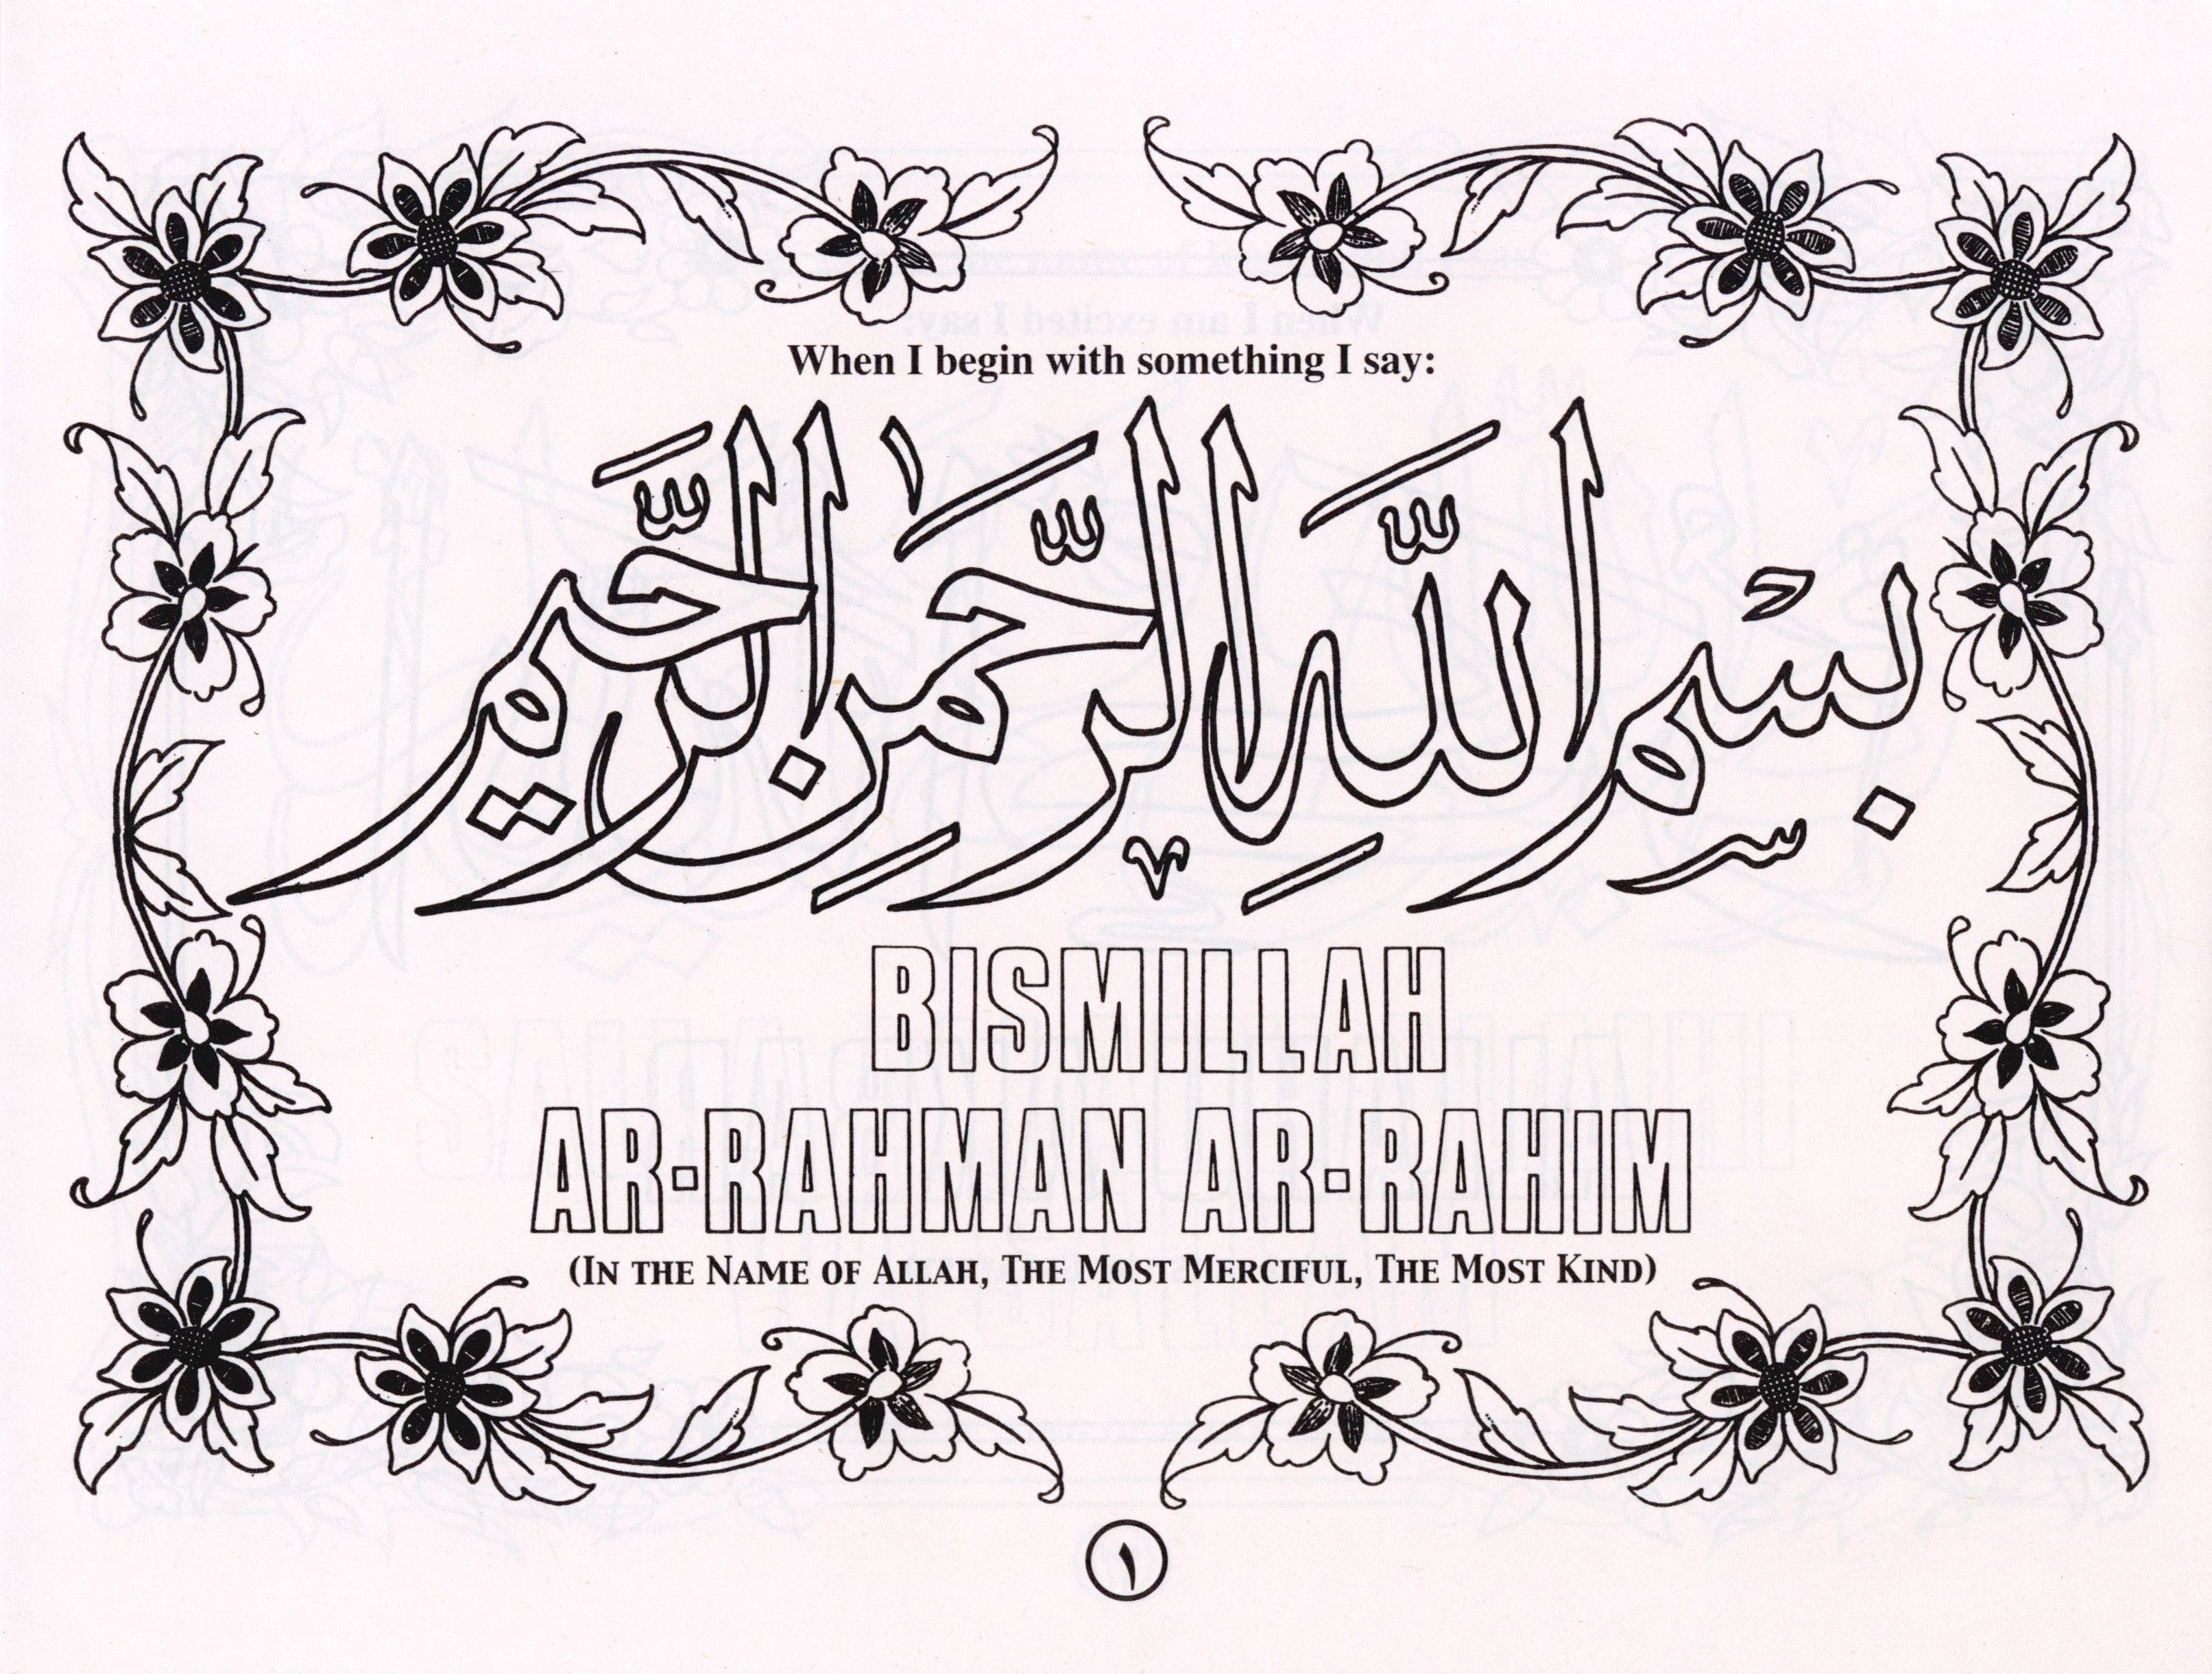 When I begin with something I say:
بسم الله الرحمٰن الرحيم
BISMILLAH
AR-RAHMAN AR-RAHIM
(IN THE NAME OF ALLAH, THE MOST MERCIFUL, THE MOST KIND)
١